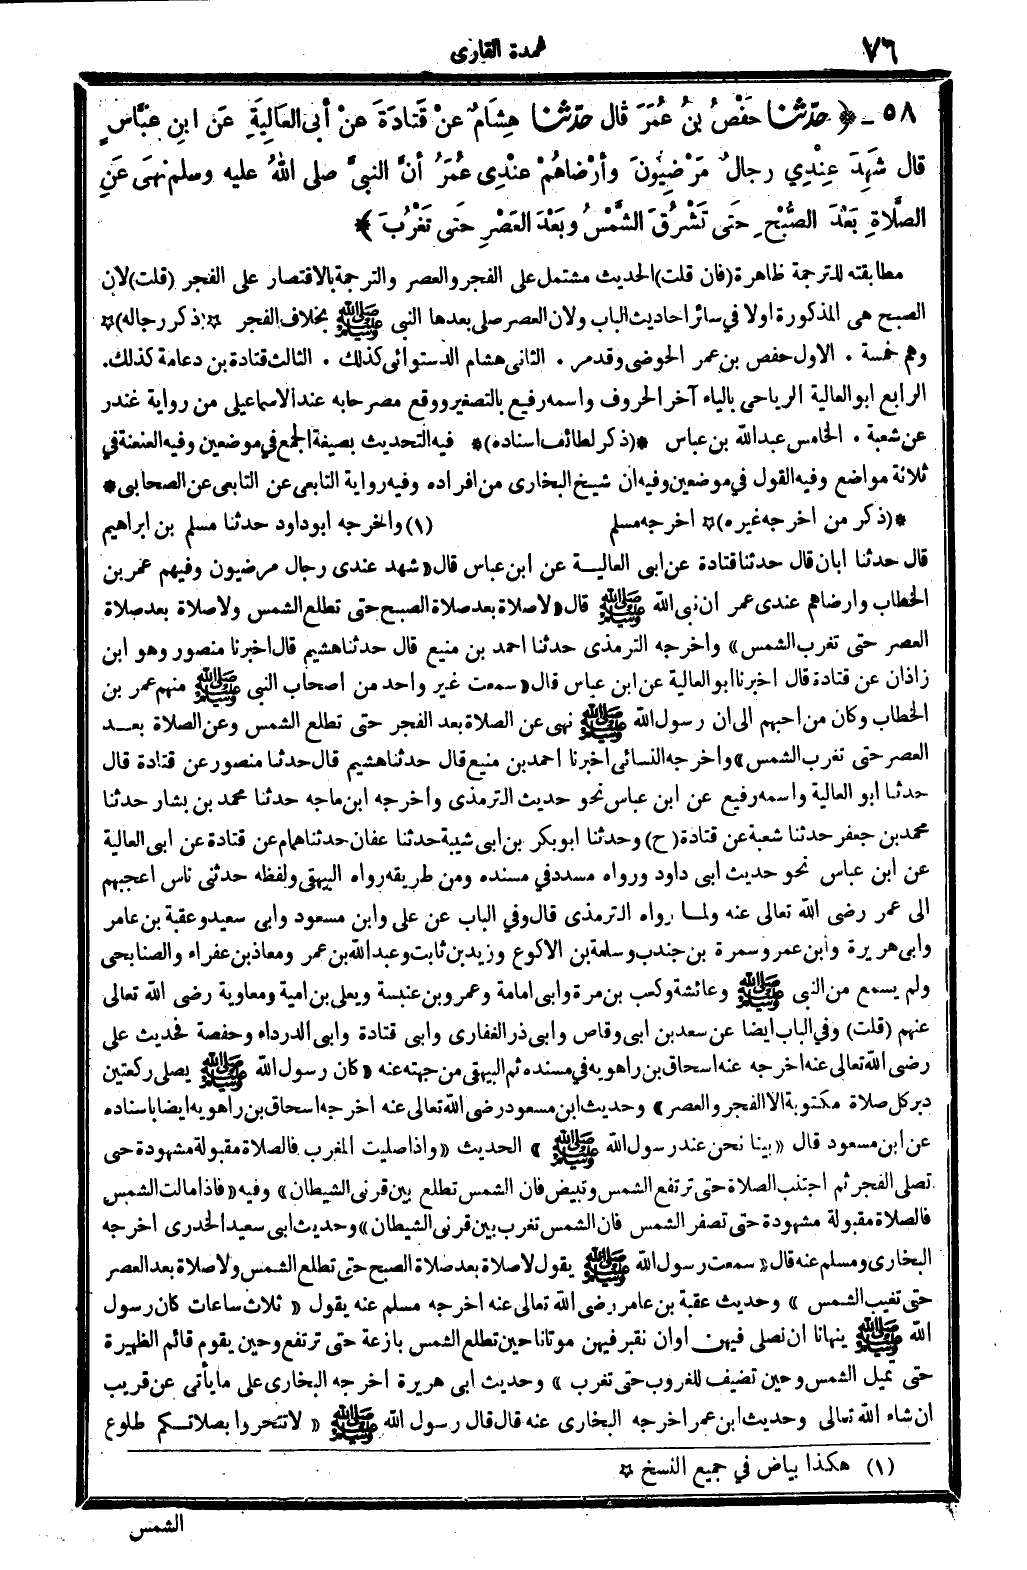 ٧٦
عمدة القارى
٥٨ - ﴿ حَدّثنا حَفْصُ بنُ عُمَرَ قال حَدّثنا هِشَامٌ عنْ قَتَادَةَ عنْ أبى العَالِيَةِ عَن ابنِ عبَّاسٍ
قال شَهِدَ عِنْدِي رجالٌ مَرْضِيُّونَ وأرْضاهُمْ عنْدِى عُمَرُ أنَّ النبىَّ صلى اللهُ عليه وسلم نهَى عَنِ
الصَّلاةِ بَعْدَ الصُّبْحِ حَتى تَشْرُقَ الشَّمْسُ وبَعْدَ العَصْرِ حتَى تَغْرُبَ ﴾
مطابقته للترجمة ظاهرة (فان قلت) الحديث مشتمل على الفجر والعصر والترجمة بالاقتصار على الفجر (قلت) لان
الصبح هى المذكورة اولا في سائر احاديث الباب ولان العصر صلى بعدها النبى ﷺ بخلاف الفجر ☆ (ذكر رجاله) ☆
وهم خمسة . الاول حفص بن عمر الحوضى وقد مر . الثانى هشام الدستوائى كذلك . الثالث قتادة بن دعامة كذلك.
الرابع ابو العالية الرياحى بالياء آخر الحروف واسمه رفيع بالتصغير ووقع مصرحا به عند الاسماعيلى من رواية غندر
عن شعبة . الخامس عبد الله بن عباس *(ذكر لطائف اسناده)* فيه التحديث بصيغة الجمع في موضعين وفيه العنعنة في
ثلاثة مواضع وفيه القول في موضعين وفيه ان شيخ البخارى من افراده وفيه رواية التابعى عن التابعى عن الصحابى *
*(ذكر من اخرجه غيره) ☆ اخرجه مسلم (١) واخرجه ابو داود حدثنا مسلم بن ابراهيم
قال حدثنا ابان قال حدثنا قتادة عن ابى العالية عن ابن عباس قال «شهد عندى رجال مرضيون وفيهم عمر بن
الخطاب وارضاهم عندى عمر ان نبى الله ﷺ قال «لا صلاة بعد صلاة الصبح حتى تطلع الشمس ولا صلاة بعد صلاة
العصر حتى تغرب الشمس» واخرجه الترمذى حدثنا احمد بن منيع قال حدثنا هشيم قال اخبرنا منصور وهو ابن
زاذان عن قتادة قال اخبرنا ابو العالية عن ابن عباس قال «سمعت غير واحد من اصحاب النبى ﷺ منهم عمر بن
الخطاب وكان من احبهم الى ان رسول الله ﷺ نهى عن الصلاة بعد الفجر حتى تطلع الشمس وعن الصلاة بعد
العصر حتى تغرب الشمس» واخرجه النسائى اخبرنا احمد بن منيع قال حدثنا هشيم قال حدثنا منصور عن قتادة قال
حدثنا ابو العالية واسمه رفيع عن ابن عباس نحو حديث الترمذى واخرجه ابن ماجه حدثنا محمد بن بشار حدثنا
محمد بن جعفر حدثنا شعبة عن قتادة (ح) وحدثنا ابو بكر بن ابى شيبة حدثنا عفان حدثنا همام عن قتادة عن ابى العالية
عن ابن عباس نحو حديث ابى داود ورواه مسدد في مسنده ومن طريقه رواه البيهقى ولفظه حدثنى ناس اعجبهم
الى عمر رضى الله تعالى عنه ولما رواه الترمذى قال وفي الباب عن على وابن مسعود وابى سعيد وعقبة بن عامر
وابى هريرة وابن عمر وسمرة بن جندب وسلمة بن الاكوع وزيد بن ثابت وعبد الله بن عمر ومعاذ بن عفراء والصنابحى
ولم يسمع من النبى ﷺ وعائشة وكعب بن مرة وابى امامة وعمرو بن عنبسة ويعلى بن امية ومعاوية رضى الله تعالى
عنهم (قلت) وفي الباب ايضا عن سعد بن ابى وقاص وابى ذر الغفارى وابى قتادة وابى الدرداء وحفصة فحديث على
رضى الله تعالى عنه اخرجه عنه اسحاق بن راهويه في مسنده ثم البيهقى من جهته عنه «كان رسول الله ﷺ يصلى ركعتين
دبر كل صلاة مكتوبة الا الفجر والعصر» وحديث ابن مسعود رضى الله تعالى عنه اخرجه اسحاق بن راهويه ايضا باسناده
عن ابن مسعود قال «بينا نحن عند رسول الله ﷺ» الحديث «واذا صليت المغرب فالصلاة مقبولة مشهودة حتى
تصلى الفجر ثم اجتنب الصلاة حتى ترتفع الشمس وتبيض فان الشمس تطلع بين قرنى الشيطان» وفيه «فاذا مالت الشمس
فالصلاة مقبولة مشهودة حتى تصفر الشمس فان الشمس تغرب بين قرنى الشيطان» وحديث ابى سعيد الخدرى اخرجه
البخارى ومسلم عنه قال «سمعت رسول الله ﷺ يقول لا صلاة بعد صلاة الصبح حتى تطلع الشمس ولا صلاة بعد العصر
حتى تغيب الشمس» وحديث عقبة بن عامر رضى الله تعالى عنه اخرجه مسلم عنه يقول «ثلاث ساعات كان رسول
الله ﷺ ينهانا ان نصلى فيهن اوان نقبر فيهن موتانا حين تطلع الشمس بازعة حتى ترتفع وحين يقوم قائم الظهيرة
حتى تميل الشمس وحين تضيف للغروب حتى تغرب» وحديث ابى هريرة اخرجه البخارى على ما يأتى عن قريب
ان شاء الله تعالى وحديث ابن عمر اخرجه البخارى عنه قال قال رسول الله ﷺ «لا تتحروا بصلاتكم طلوع
(١) هكذا بياض في جميع النسخ ☆
الشمس